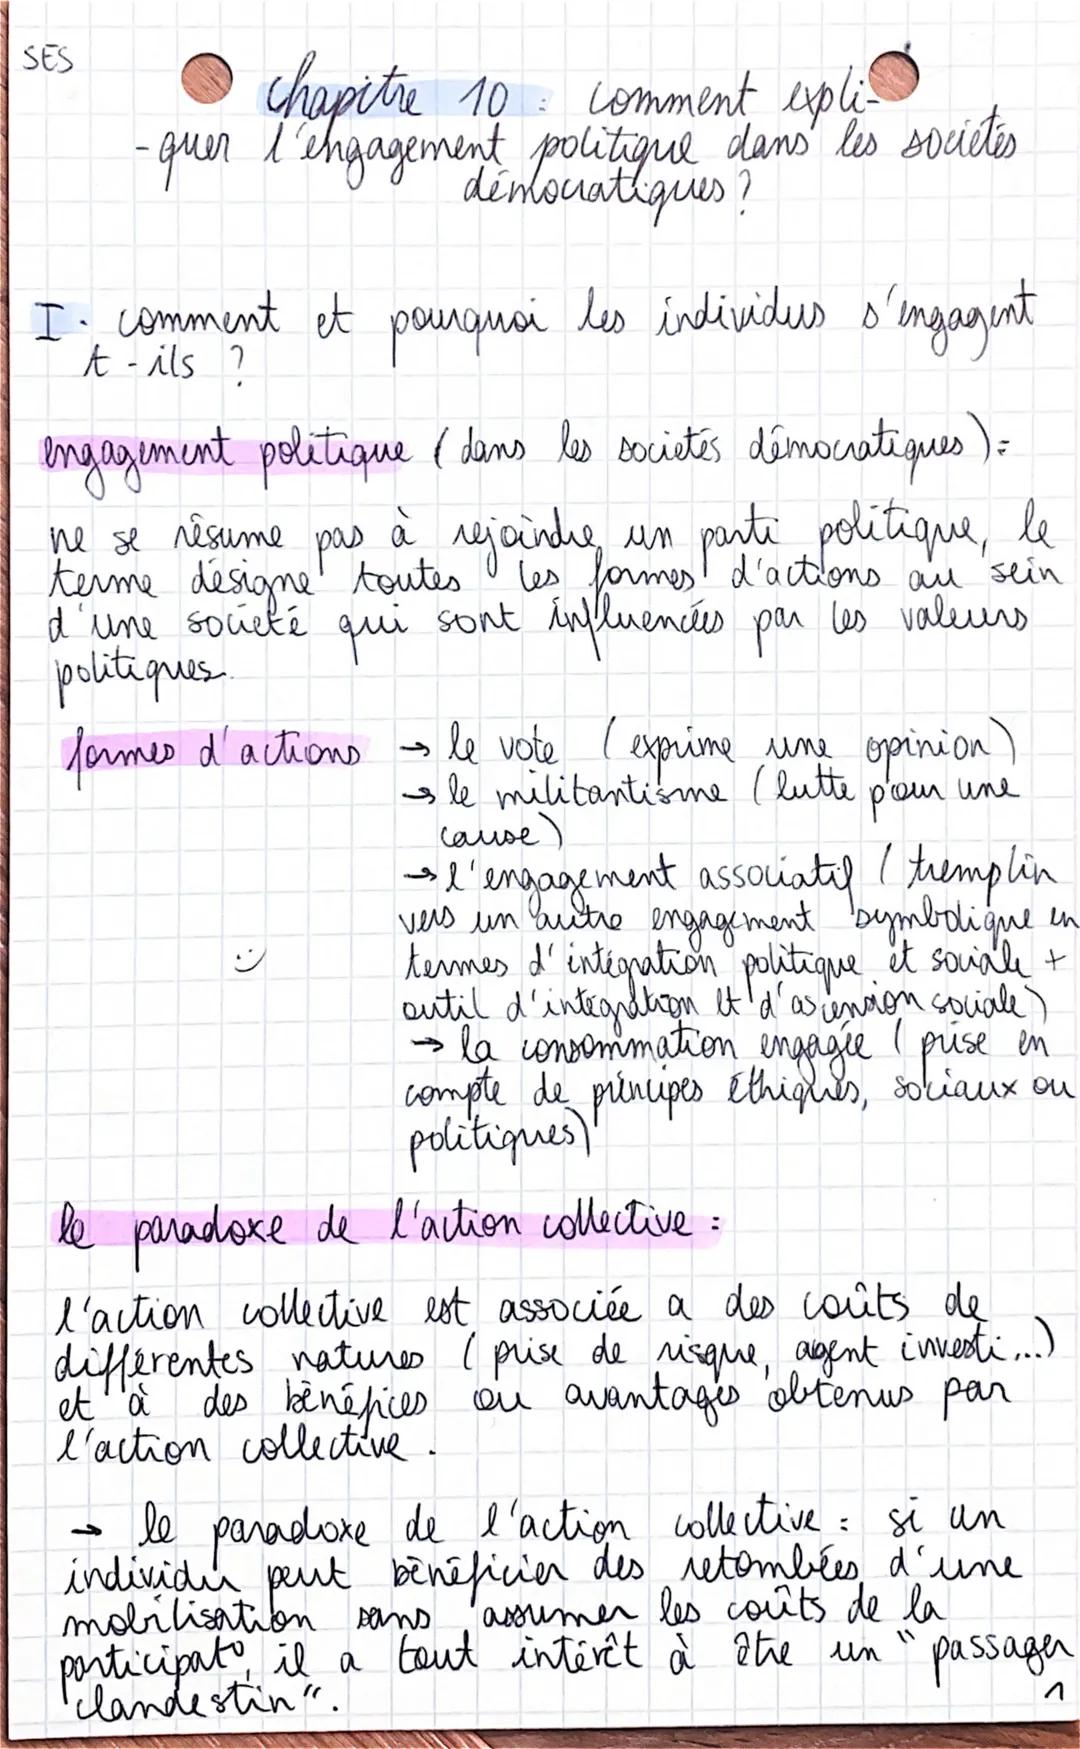 SES
chapitre 10 : comment expli-
-quer l'engagement politique dans les sociétés
démocratiques ?
I. comment et pourquoi les individus s'engagent
t-ils ?
engagement politique (dans les sociétés démocratiques) :
ne se résume pas à rejoindre un parti politique, le
terme désigne toutes les formes d'actions au sein
d'une société qui sont influencées par les valeurs
politiques.
formes d'actions → le vote (exprime une opinion)
→ le militantisme (lutte pour une
cause)
→ l'engagement associatif (tremplin
vers un autre engagement symbolique en
termes d'intégration politique et sociale +
outil d'intégration et d'ascension sociale)
:)
→ la consommation engagée (prise en
compte de principes éthiques, sociaux ou
politiques)
le paradoxe de l'action collective :
l'action collective est associée a des coûts de
différentes natures (prise de risque, argent investi...)
et à des bénéfices ou avantages obtenus par
l'action collective.
→ le paradoxe de l'action collective : si un
individu peut bénéficier des retombées d'une
mobilisation sans assumer les coûts de la
participat°, il a tout intérêt à être un "passager
clandestin".
1